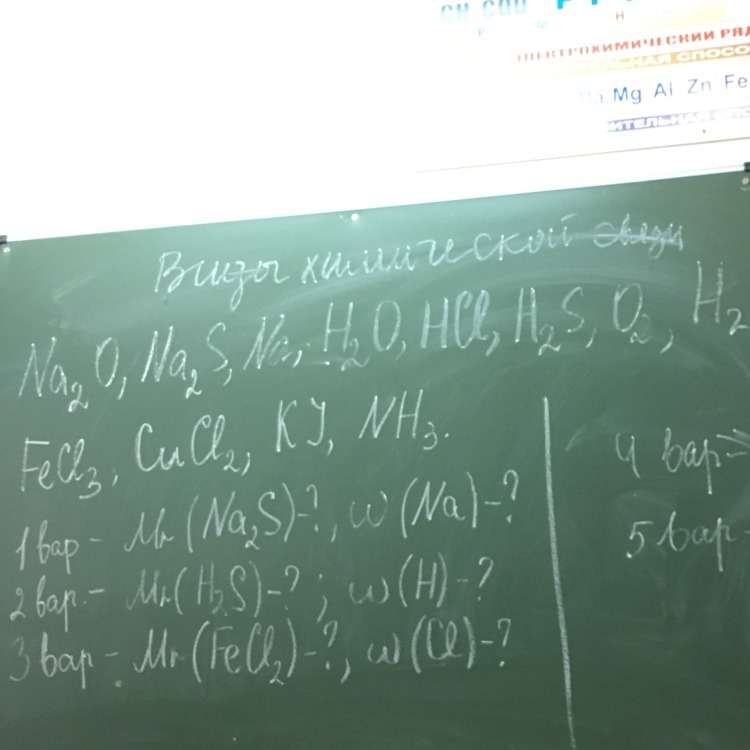 CH COO
Р М Н
ЭЛЕКТРОХИМИЧЕСКИЙ РЯД
ТЕЛЬНАЯ СПОСО
Mg Al Zn Fe
ИТЕЛЬНАЯ СПО
Виды химической связи
Na₂O, Na₂S, Na, H₂O, HCl, H₂S, O₂, H₂
FeCl₃, CuCl₂, KJ, NH₃.
1 вар - Mr (Na₂S)-?, w (Na)-?
2 вар.- Mr(H₂S)-?; w(H)-?
3 вар - Mr (FeCl₂)-?, w (Cl)-?
4 вар-
5 вар-